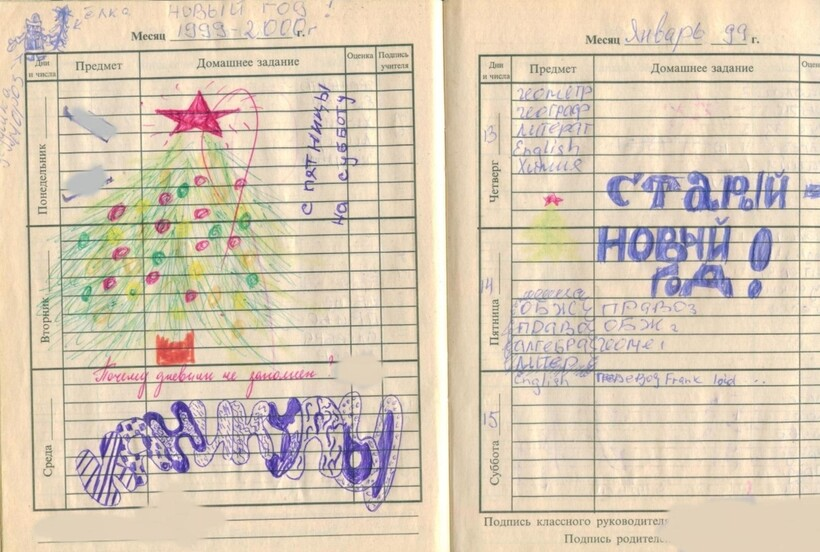 ёлка
НОВЫЙ ГОД!
Месяц 1999-2000 г.
Дни и числа
Предмет
Домашнее задание
Оценка
Подпись учителя
Понедельник
С ПЯТНИЦЫ
НА СУББОТУ
Вторник
Почему дневник не заполнен?
Среда
КАНИКУЛЫ
Месяц Январь 99 г.
Дни и числа
Предмет
Домашнее задание
Оцен
Четверг
13
геометр
географ
литерат
English
Химия
СТАРЫЙ
НОВЫЙ
ГОД!
Пятница
14
ОБЖ
ПРАВО
ПРАВО
ОБЖ
алгебра
литер
English
перевод Frank
Суббота
15
Подпись классного руководителя
Подпись родител